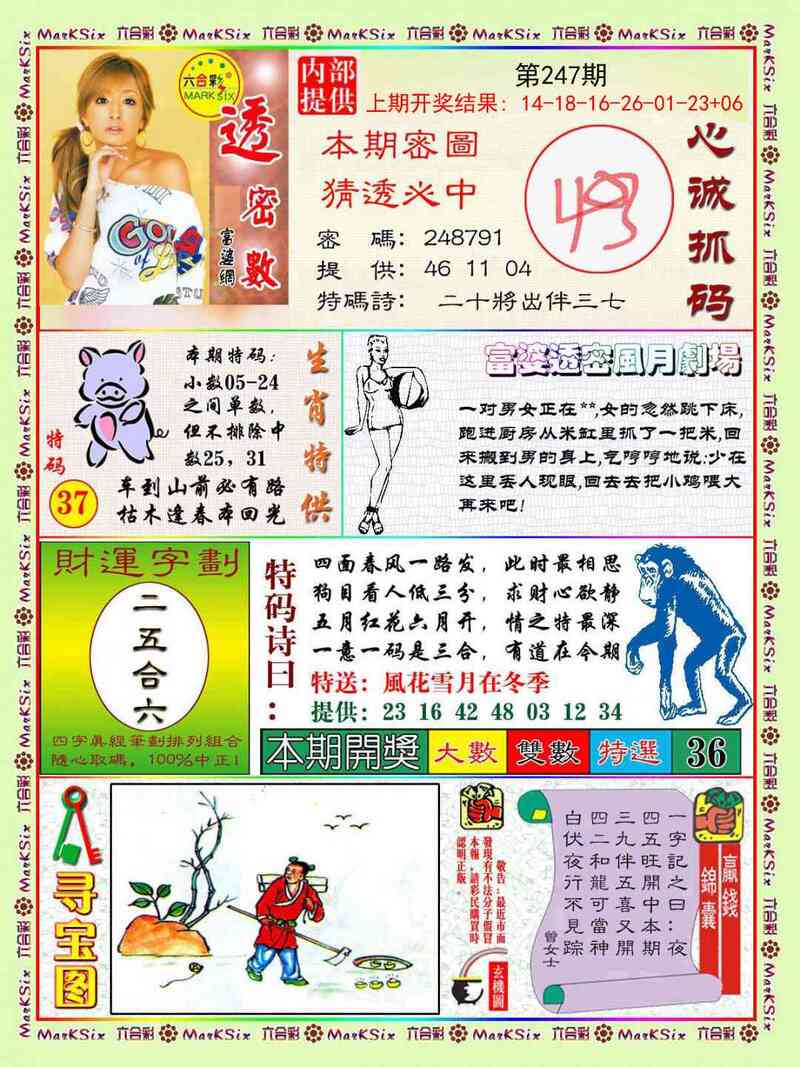 六合彩
MARK SIX
透密數
富婆網
内部
提供
第247期
上期开奖结果：14-18-16-26-01-23+06
本期密圖
猜透必中
密 碼：248791
提 供：46 11 04
特碼詩： 二十將出伴三七
493
心诚抓码
本期特码：
小数05-24
之间单数，
但不排除中
数25，31
特码
37
车到山前必有路
枯木逢春本回光
生肖特供
富婆透密風月劇場
一对男女正在**,女的忽然跳下床,
跑进厨房从米缸里抓了一把米,回
来搬到男的身上,气哼哼地说:少在
这里丢人现眼,回去去把小鸡喂大
再来吧!
財運字劃
二五合六
四字真經筆劃排列組合
隨心取碼，100%中正!
特码诗曰：
四面春风一路发，此时最相思
狗目看人低三分，求财心欲静
五月红花六月开，情之特最深
一意一码是三合，有道在今期
特送：風花雪月在冬季
提供：23 16 42 48 03 12 34
本期開獎 大數 雙數 特選 36
寻宝图
敬告：最近市面
發現有不法分子假冒
本報，請彩民購買時
認明正版。
玄機圖
一字記之曰：夜
四五旺開中本期
三九伴五喜又開
四二和龍可當神
白伏夜行不見踪
曾女士
贏錢
錦囊
MarKSix 六合彩